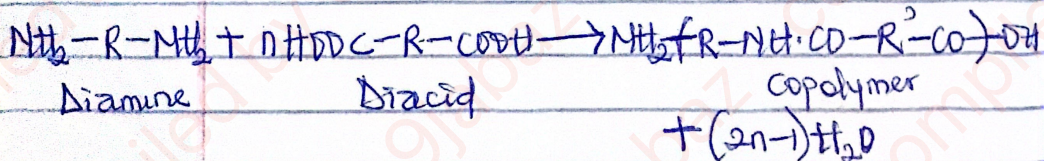 NH₂-R-NH₂ + nHOOC-R-COOH → NH₂(R-NH·CO-R'-CO)-OH
Diamine Diacid Copolymer
+ (2n-1)H₂O